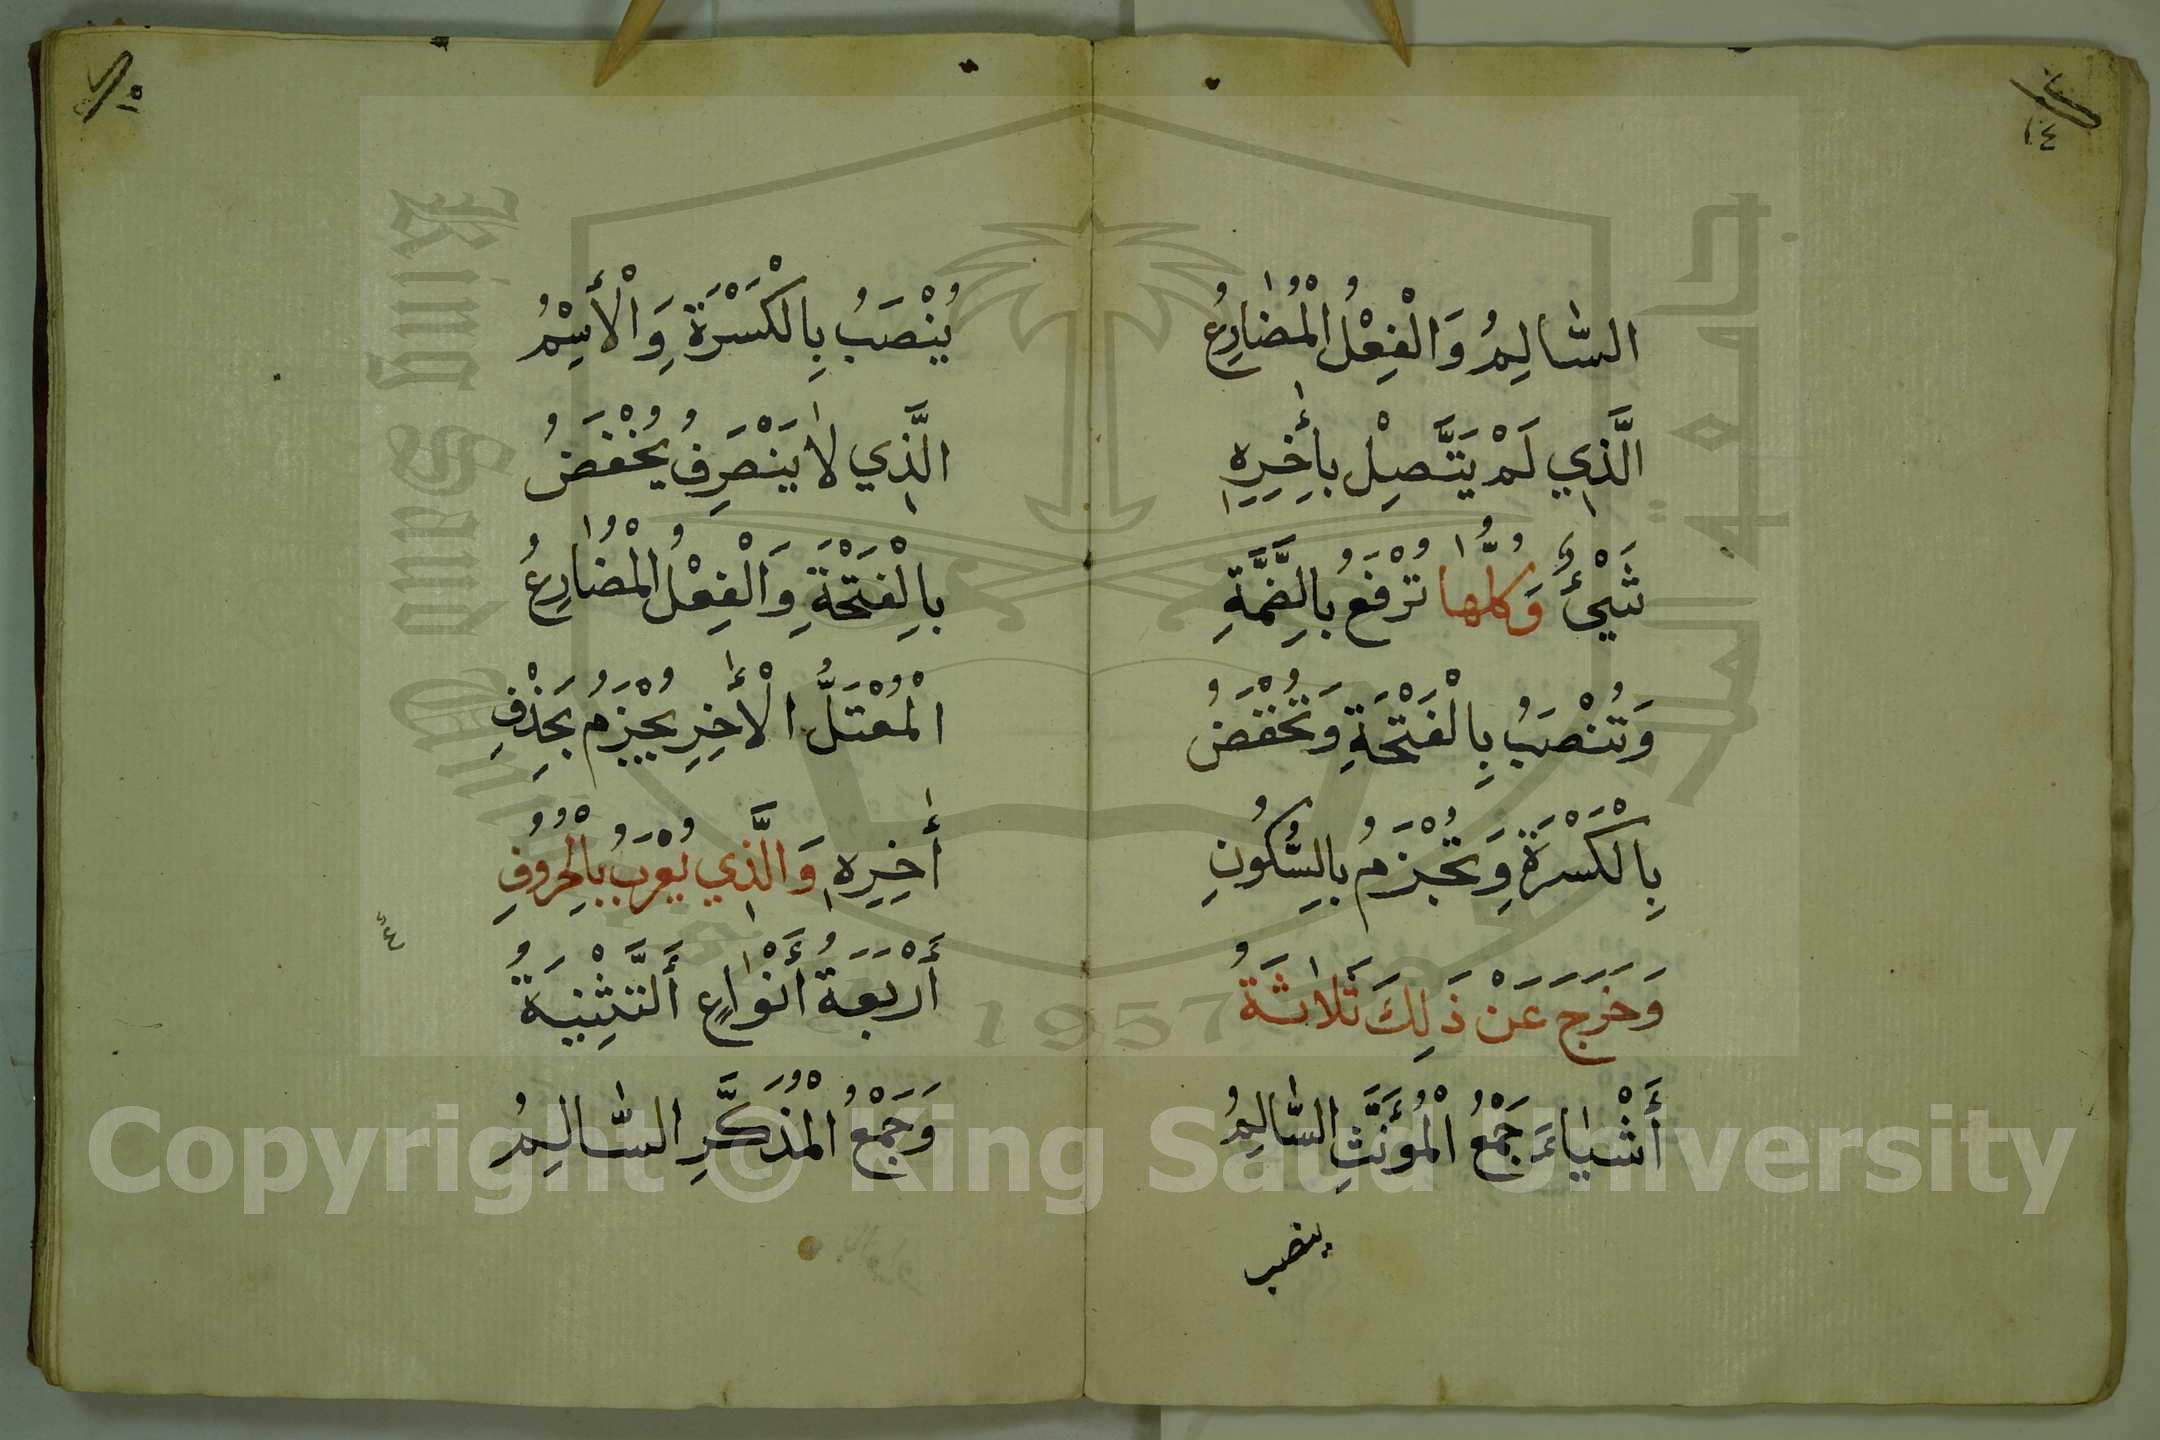 ١٤
السَّالِمُ وَالْفِعْلُ الْمُضَارِعُ
الَّذِي لَمْ يَتَّصِلْ بِأٰخِرِهِ
شَيْئٌ وَكُلُّهَا تُرْفَعُ بِالضَّمَّةِ
وَتُنْصَبُ بِالْفَتْحَةِ وَتُخْفَضُ
بِالْكَسْرَةِ وَتُجْزَمُ بِالسُّكُونِ
وَخَرَجَ عَنْ ذَلِكَ ثَلَاثَةُ
أَشْيَاءَ جَمْعُ الْمُؤَنَّثِ السَّالِمُ
ينصب
١٥
يُنْصَبُ بِالْكَسْرَةِ وَالْأِسْمُ
الَّذِي لَا يَنْصَرِفُ يُخْفَضُ
بِالْفَتْحَةِ وَالْفِعْلُ الْمُضَارِعُ
الْمُعْتَلُّ الْأٰخِرِ يُجْزَمُ بِحَذْفِ
أٰخِرِهِ وَالَّذِي يُعْرَبُ بِالْحُرُوفِ
أَرْبَعَةُ أَنْوَاعٍ أَلتَّثْنِيَةُ
وَجَمْعُ الْمُذَكَّرِ السَّالِمُ
جامعة الملك سعود
King Saud University
1957
Copyright © King Saud University